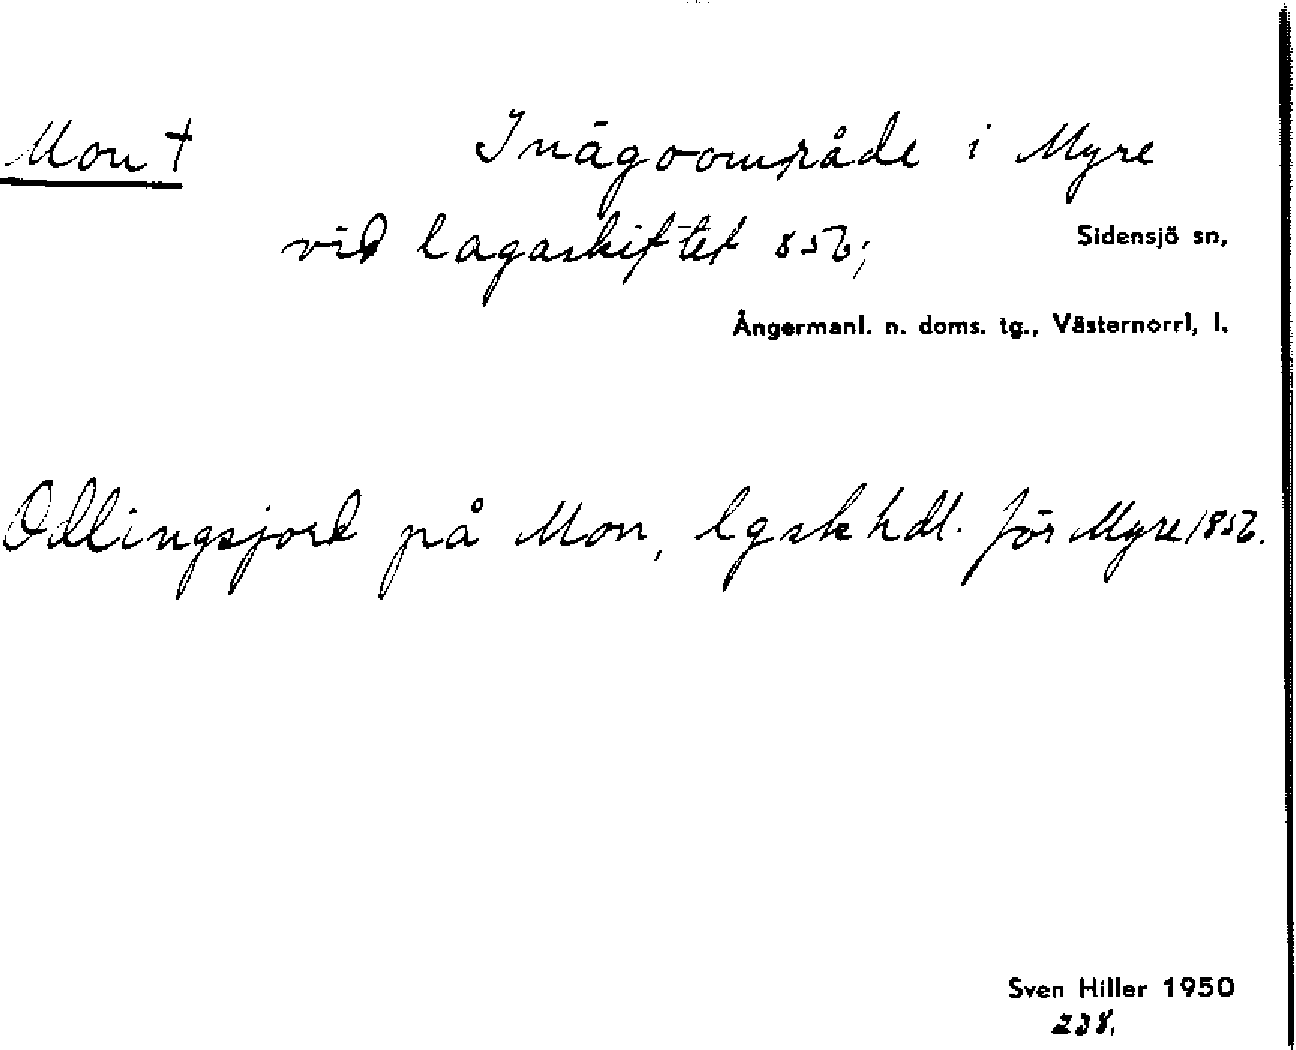 Mon † Inägoområde i Myre
vid lagaskiftet 856;
Sidensjö sn,
Ångermanl. n. doms. tg., Västernorrl, l.
Odlingsjord på Mon, lgskhdl. för Myre 1856.
Sven Hiller 1950
238.